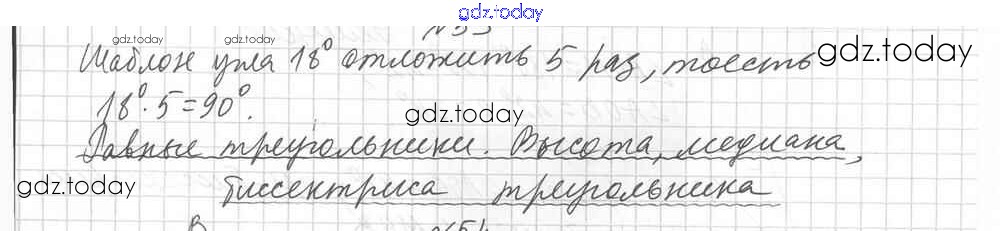 gdz.today
№53
gdz.today gdz.today
Шаблон угла 18° отложить 5 раз, тоесть gdz.today
18°·5=90°. gdz.today
Равные треугольники. Высота, медиана,
gdz.today биссектриса треугольника
№54